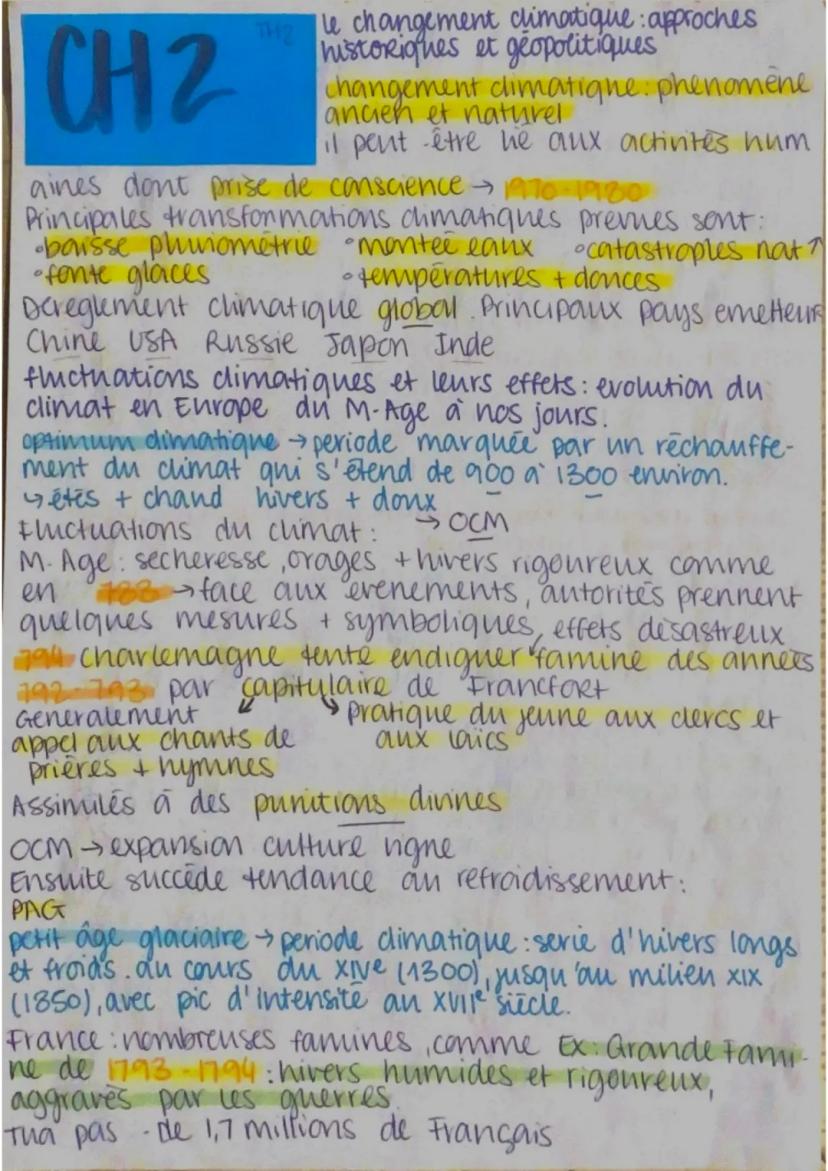 CH2
TH2
le changement climatique : approches
historiques et géopolitiques
changement climatique : phénomène
ancien et naturel
il peut être lié aux activités hum
aines dont prise de conscience → 1970-1980
Principales transformations climatiques prévues sont :
• baisse pluviométrie • montée eaux • catastroples nat ↑
• fonte glaces • températures + douces
Dérèglement climatique global. Principaux pays emetteurs
Chine USA Russie Japon Inde
fluctuations climatiques et leurs effets : evolution du
climat en Europe du M-Age à nos jours.
optimum climatique → periode marquée par un réchauffe-
ment du climat qui s'étend de 900 à 1300 environ.
↳ étés + chand hivers + doux
→ OCM
Fluctuations du climat :
M. Age : secheresse, orages + hivers rigoureux comme
en → face aux evenements, autorités prennent
quelques mesures + symboliques, effets désastreux
794 Charlemagne tente endiguer famine des années
792-793 par capitulaire de Francfort
Généralement ↙ ↘ Pratique du jeune aux clercs et
appel aux chants de aux laïcs
prières + hymnes
Assimilés à des punitions divines
OCM → expansion culture vigne
Ensuite succède tendance au refroidissement :
PAG
petit âge glaciaire → periode climatique : serie d'hivers longs
et froids. au cours du XIVe (1300), jusqu'au milieu XIX
(1850), avec pic d'intensité au XVIIe siècle.
France : nombreuses famines, comme Ex : Grande Fami-
ne de 1793-1794 : hivers humides et rigoureux,
aggravés par les guerres
Tua pas - de 1,7 millions de Français